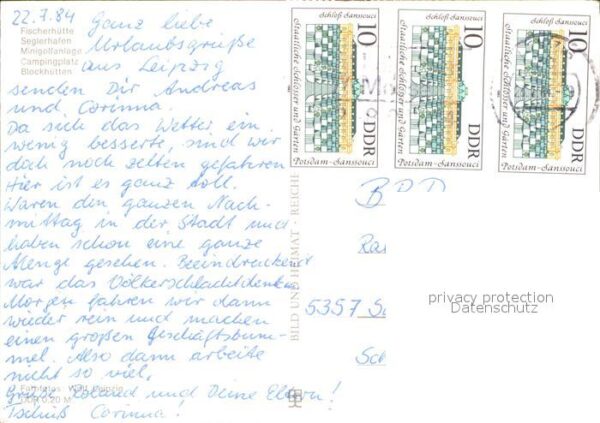 22.7.84 Ganz liebe
Fischerhütte
Seglerhafen
Minigolfanlage
Campingplatz
Blockhütten
Urlaubsgrüße
aus Leipzig
senden Dir Andreas
und Corinna.
Da sich das Wetter ein
wenig besserte, sind wir
doch noch zelten gefahren
Hier ist es ganz toll.
Waren den ganzen Nach-
mittag in der Stadt und
haben schon eine ganze
Menge gesehen. Beeindruckend
war das Völkerschlachtdenkm
Morgen fahren wir dann
wieder rein und machen
einen großen Geschäftsbum-
mel. Also dann arbeite
nicht so viel,
Grüße Roland und Deine Eltern!
Tschüß Corinna!
Farbfotos: Leipzig
DDR 0,20 M
BILD UND HEIMAT · REICHE
Schloß Sanssouci
Staatliche Schlösser und Gärten
Potsdam-Sanssouci
10
DDR
Schloß Sanssouci
Staatliche Schlösser und Gärten
Potsdam-Sanssouci
10
DDR
Schloß Sanssouci
Staatliche Schlösser und Gärten
Potsdam-Sanssouci
10
DDR
5357 S
privacy protection
Datenschutz